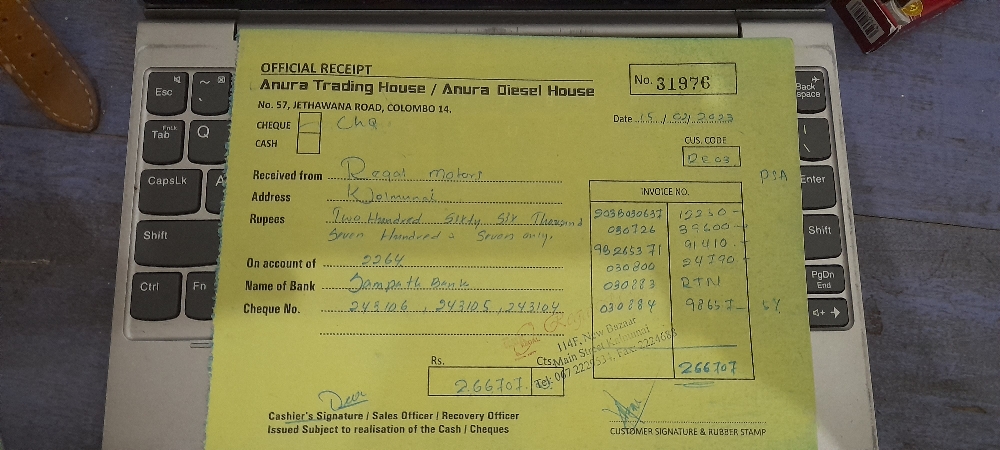 OFFICIAL RECEIPT
Anura Trading House / Anura Diesel House
No. 57, JETHAWANA ROAD, COLOMBO 14.
No. 31976
Date 15 / 02 / 2023
CHEQUE Chq.
CASH
CUS. CODE
DE03
PSA
Received from Regal Motors
Address Kalmunai
Rupees Two Hundred Sixty Six Thousand
Seven Hundred & Seven only.
On account of 2264
Name of Bank Sampath Bank
Cheque No. 243106, 243105, 243104
INVOICE NO.
030726 39600-
91410-
030800 24790-
030883 RTN
030884 98657-
266707
Rs. Cts.
266707.
114F, New Bazaar
Main Street, Kalmunai
Cashier's Signature / Sales Officer / Recovery Officer
Issued Subject to realisation of the Cash / Cheques
CUSTOMER SIGNATURE & RUBBER STAMP
Esc
Tab
Q
CapsLk
A
Shift
Ctrl
Fn
Back
space
Enter
Shift
PgDn
End